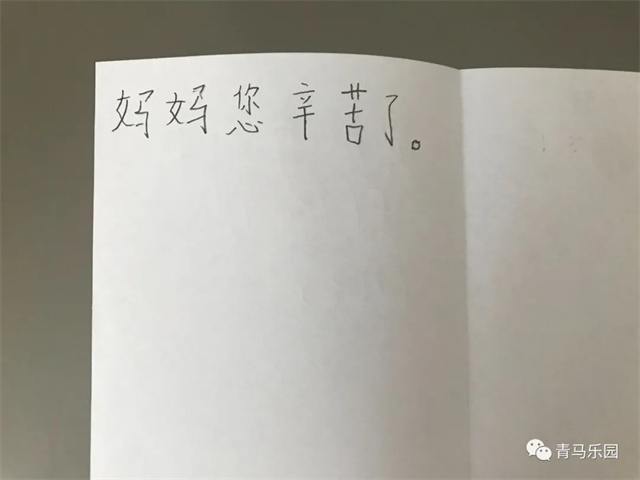 妈妈您辛苦了。
青马乐园